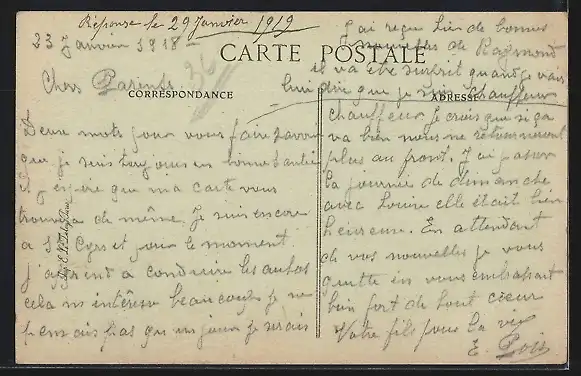 Réponse le 29 Janvier 1919
23 Janvier 1918
CARTE POSTALE
36
Chers Parents
CORRESPONDANCE
ADRESSE
Deux mots pour vous faire savoir
que je suis toujours en bonne santé
et j'espère que ma carte vous
trouvera de même. Je suis encore
a St Cyr et pour le moment
j'apprend a conduire les autos
cela m'intéresse beaucoup je ne
pensais pas qu un jour je serais
chauffeur Je crois que si ça
va bien nous ne retournerons
plus au front. J'ai passer
la journée de dimanche
avec Louise elle était bien
heureuse. En attendant
de vos nouvelles je vous
quitte en vous embrassant
bien fort de tout cœur
Votre fils pour la vie
E.
J'ai reçu hier de bonnes
nouvelles de Raymond
il va être surprit quand je vais
lui dire que je suis chauffeur